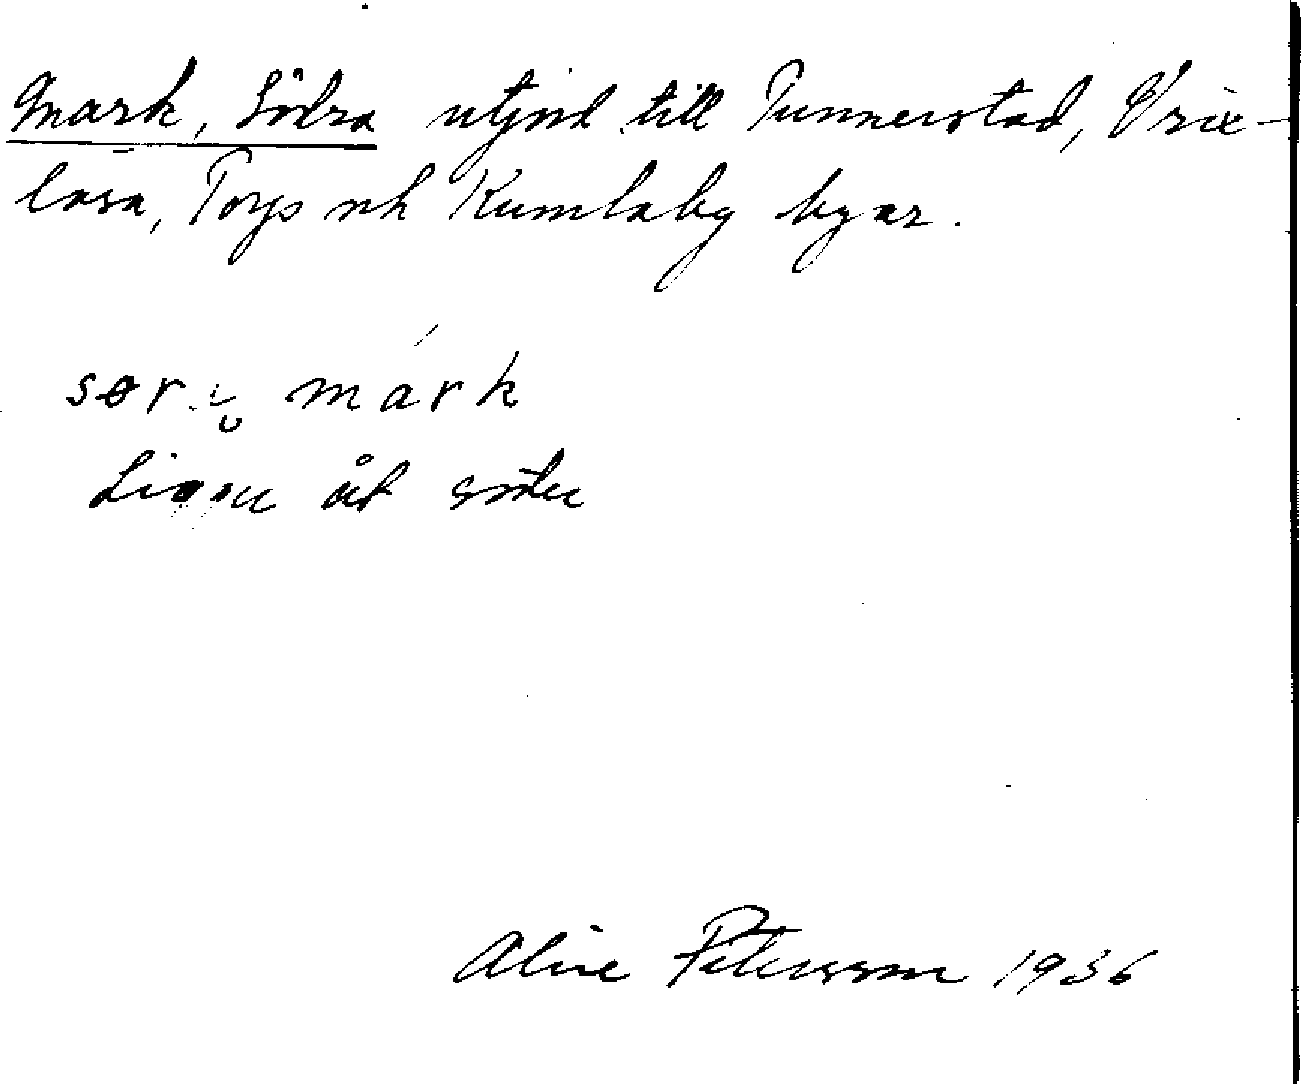 Mark, Södra utjord till Tunnerstad, Vrix-
lösa, Torp och Kumlaby byar.
mark
Ligger åt söder
Alice Petersson 1936